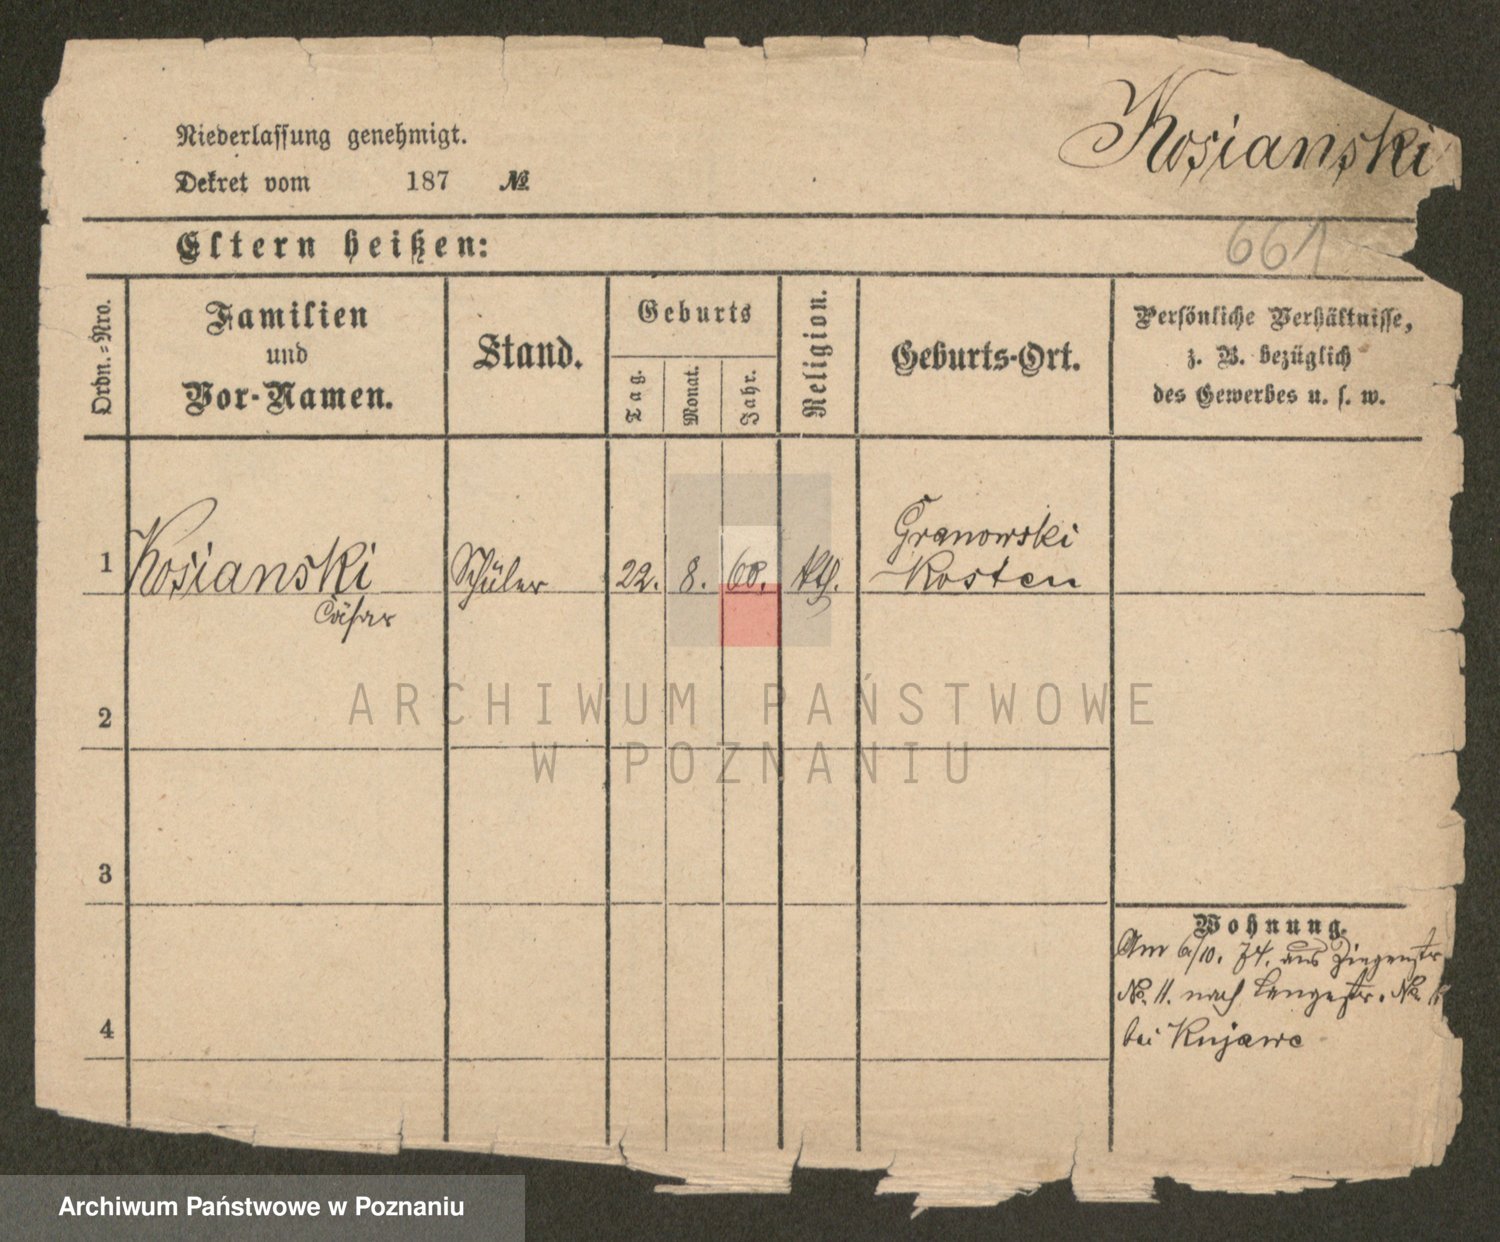 Kosianski
Niederlassung genehmigt.
Dekret vom 187 №
661
Eltern heißen:
Ordn.-Nro.
Familien
und
Vor-Namen.
Stand.
Geburts
Tag.
Monat.
Jahr.
Religion.
Geburts-Ort.
Persönliche Verhältnisse,
z. B. bezüglich
des Gewerbes u. s. w.
1 Kosianski Schüler 22. 8. 60. kth. Granowski
Kosten
Cäsar
ARCHIWUM PAŃSTWOWE
W POZNANIU
2
3
4
Wohnung.
Am 6/10. 74. aus Ziegenstr
No. 11. nach Langestr. No.
bei Kujawa
Archiwum Państwowe w Poznaniu